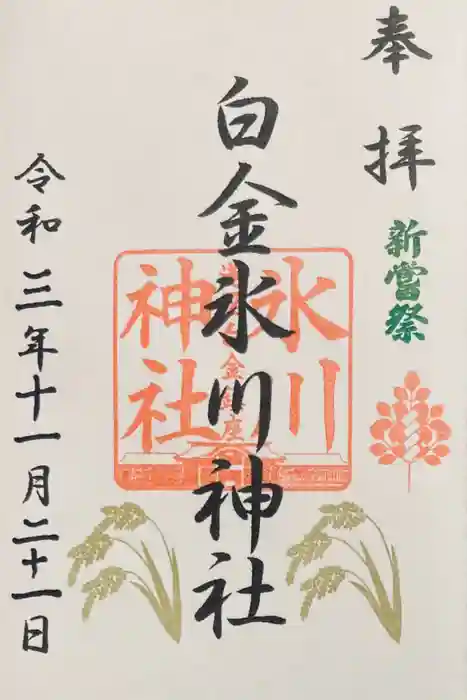 奉拝
新嘗祭
白金氷川神社
氷川
神社
令和三年十一月二十一日